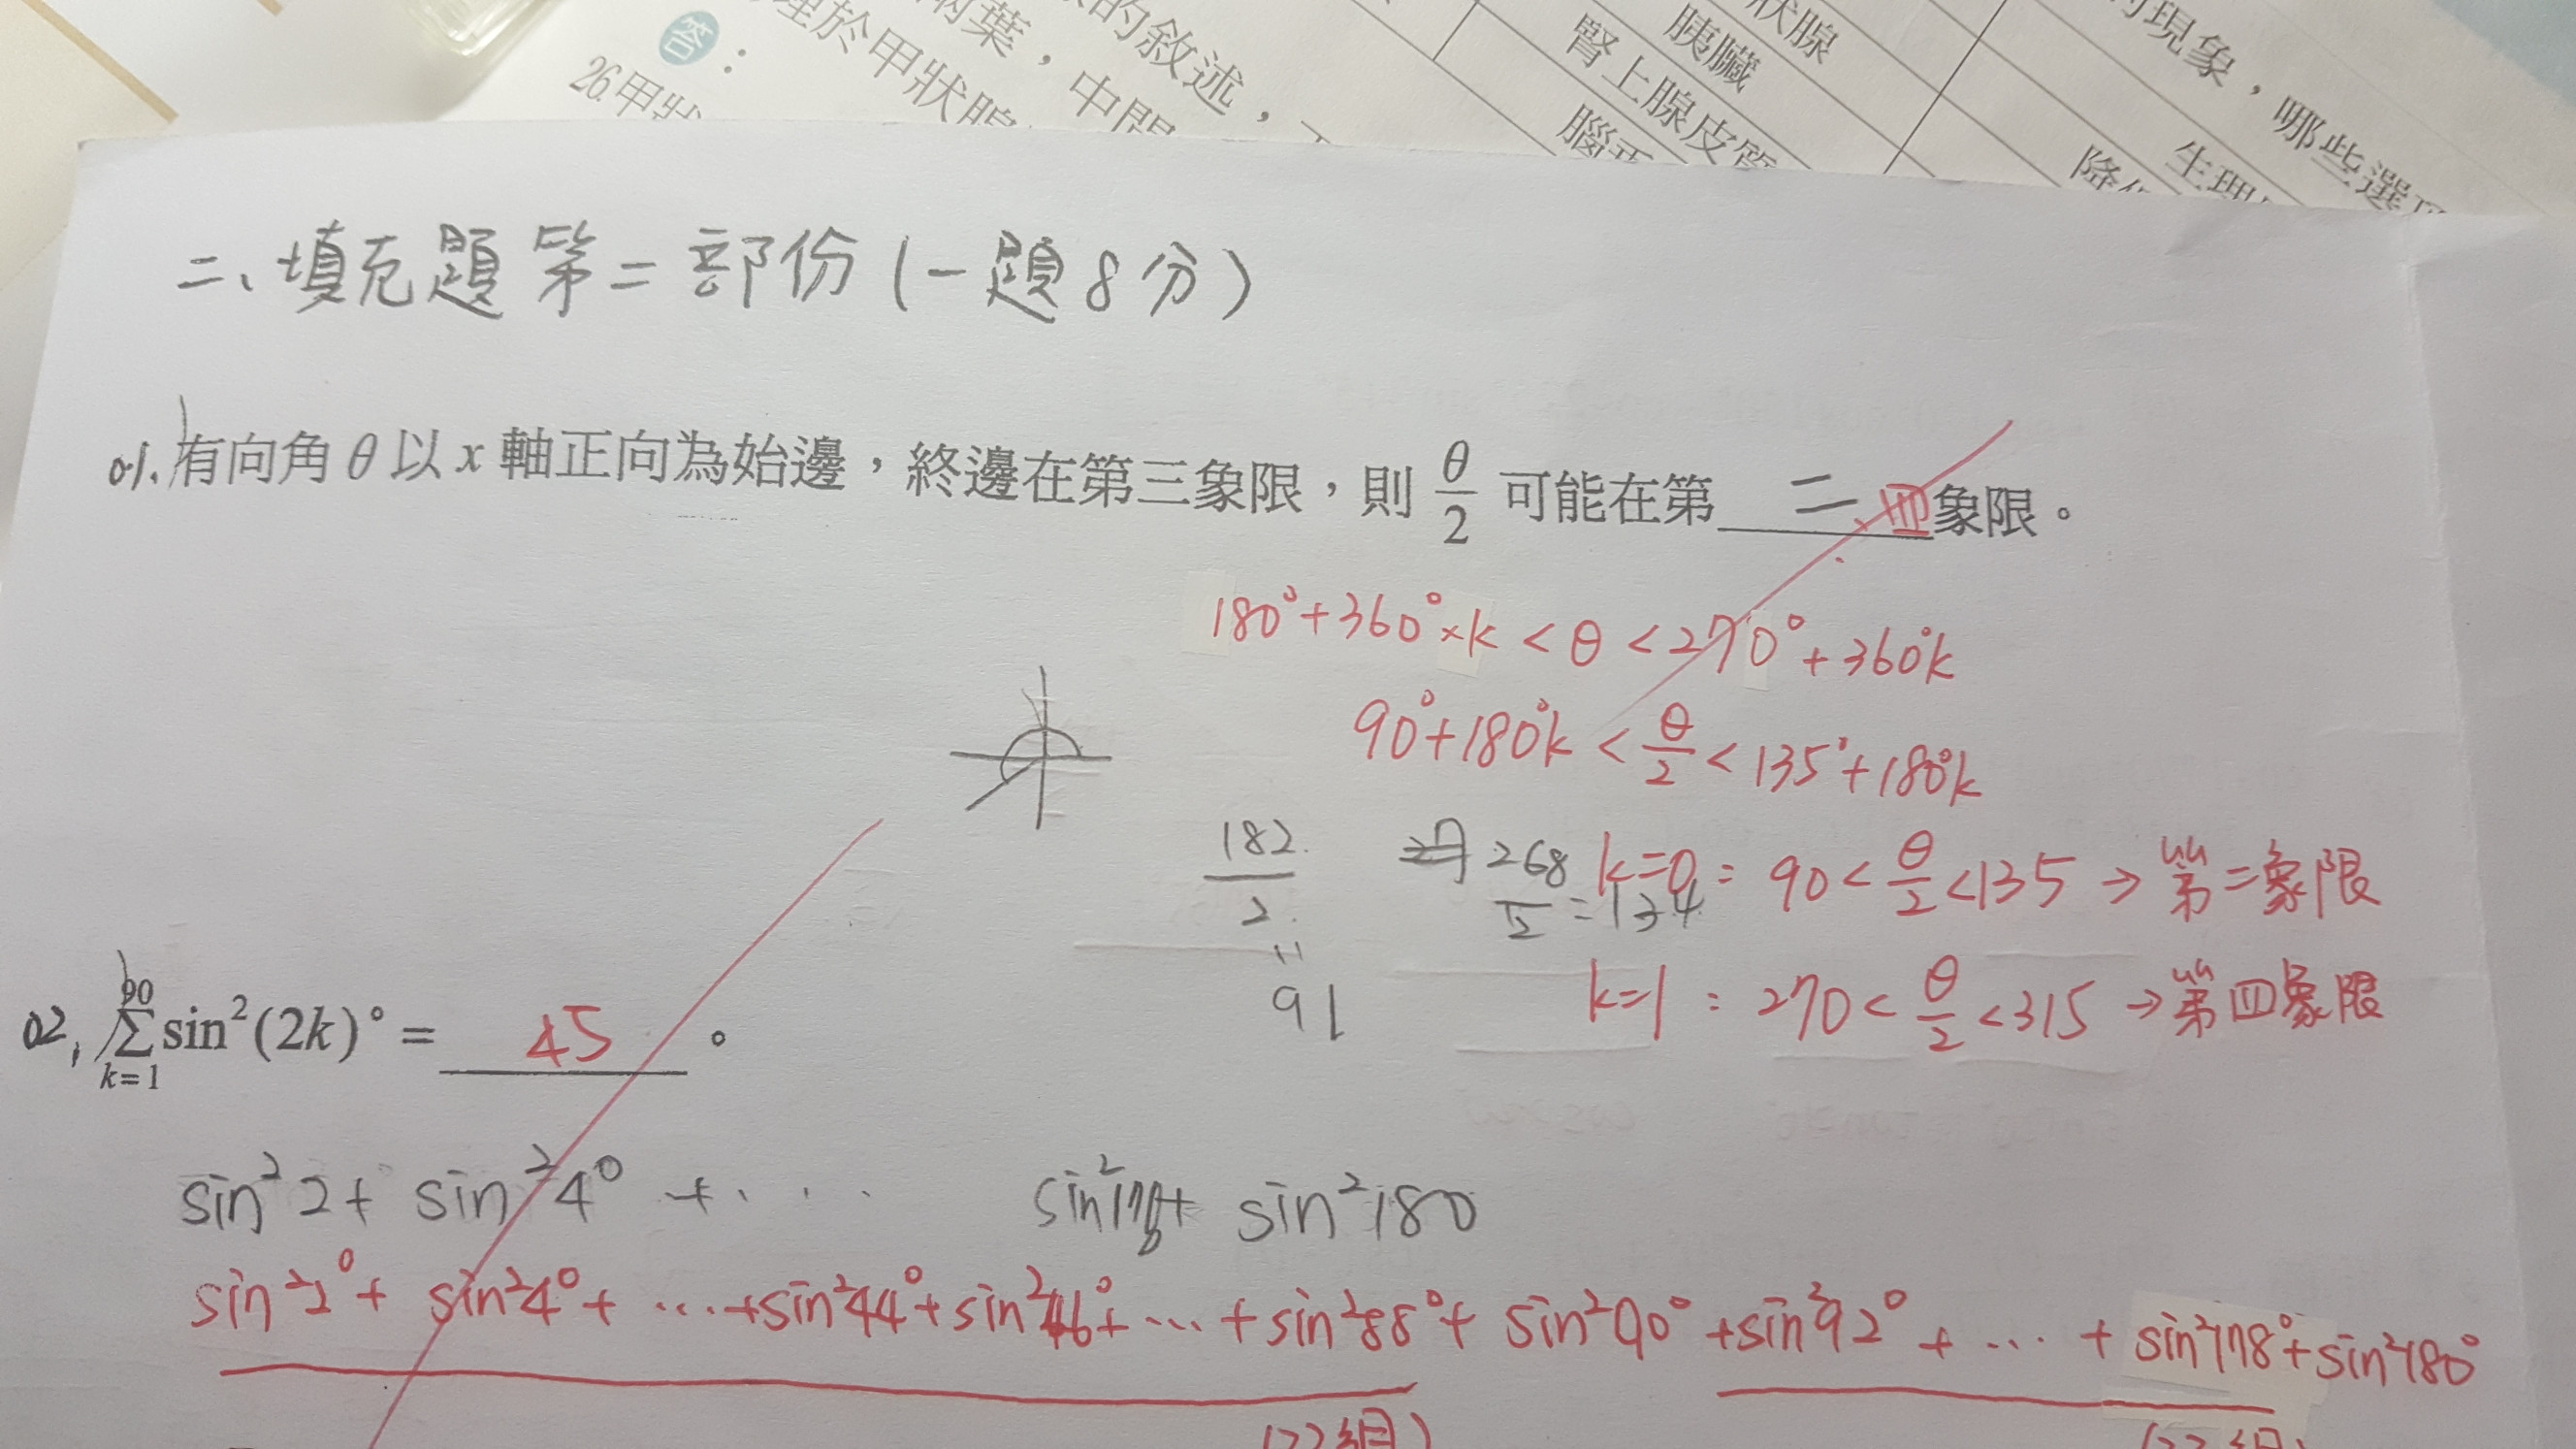 答：
的敘述，
兩葉，中間
理於甲狀腺
26.甲狀
狀腺
胰臟
腎上腺皮質
的現象，哪些選項
生理
二、填充題第二部份(一題8分)
01.有向角θ以x軸正向為始邊，終邊在第三象限，則 θ/2 可能在第 二、四 象限。
180°+360°×k < θ < 270°+360°k
90°+180°k < θ/2 < 135°+180°k
182/2 = 91
268/2 = 134
k=0 : 90 < θ/2 < 135 → 第二象限
k=1 : 270 < θ/2 < 315 → 第四象限
02. ∑_{k=1}^{90} sin²(2k)° = 45 。
sin²2 + sin²4° + · · · sin²178+ sin²180
sin²2° + sin²4° + ... + sin²44° + sin²46° + ... + sin²88° + sin²90° + sin²92° + ... + sin²178° + sin²180°
(22組) (22組)